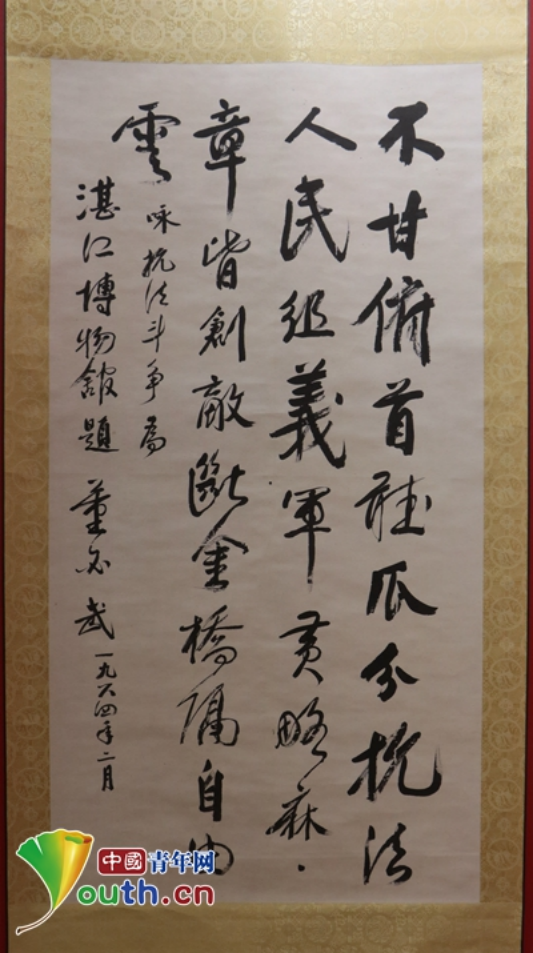 不甘俯首聽瓜分抗法
人民組義軍黄略麻
章皆創敵斷金橋隔自由
雲 咏抗法斗争為
湛江博物館題 董必武 一九六四年二月
中國青年网
Youth.cn